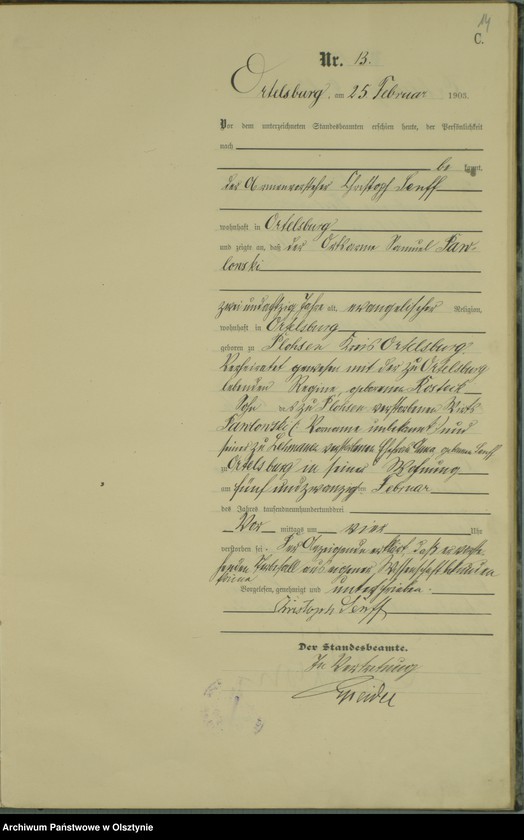 14
C.
Nr. 13.
Ortelsburg, am 25 Februar 1903.
Vor dem unterzeichneten Standesbeamten erschien heute, der Persönlichkeit
nach
be kannt,
der Armenvorsteher Christoph Senff
wohnhaft in Ortelsburg
und zeigte an, daß der Ortsarme Samuel Paw-
lowski
zweiundachtzig Jahre alt, evangelischer Religion,
wohnhaft in Ortelsburg
geboren zu Plohsen Kreis Ortelsburg.
Verheiratet gewesen mit der zu Ortelsburg
lebenden Regine, geborenen
Sohn des zu Plohsen verstorbenen Wirts
Pawlowski (Vorname unbekannt) und
seiner zu verstorbenen Ehefrau geborene Senff
zu Ortelsburg in seiner Wohnung
am fünf und zwanzigsten Februar
des Jahres tausendneunhundertunddrei
Vor mittags um vier Uhr
verstorben sei. Der Anzeigende erklärt, daß er vorste-
henden Sterbefall aus eigener Wissenschaft bekunden
könne
Vorgelesen, genehmigt und unterschrieben.
Christoph Senff
Der Standesbeamte.
In Vertretung
Archiwum Państwowe w Olsztynie